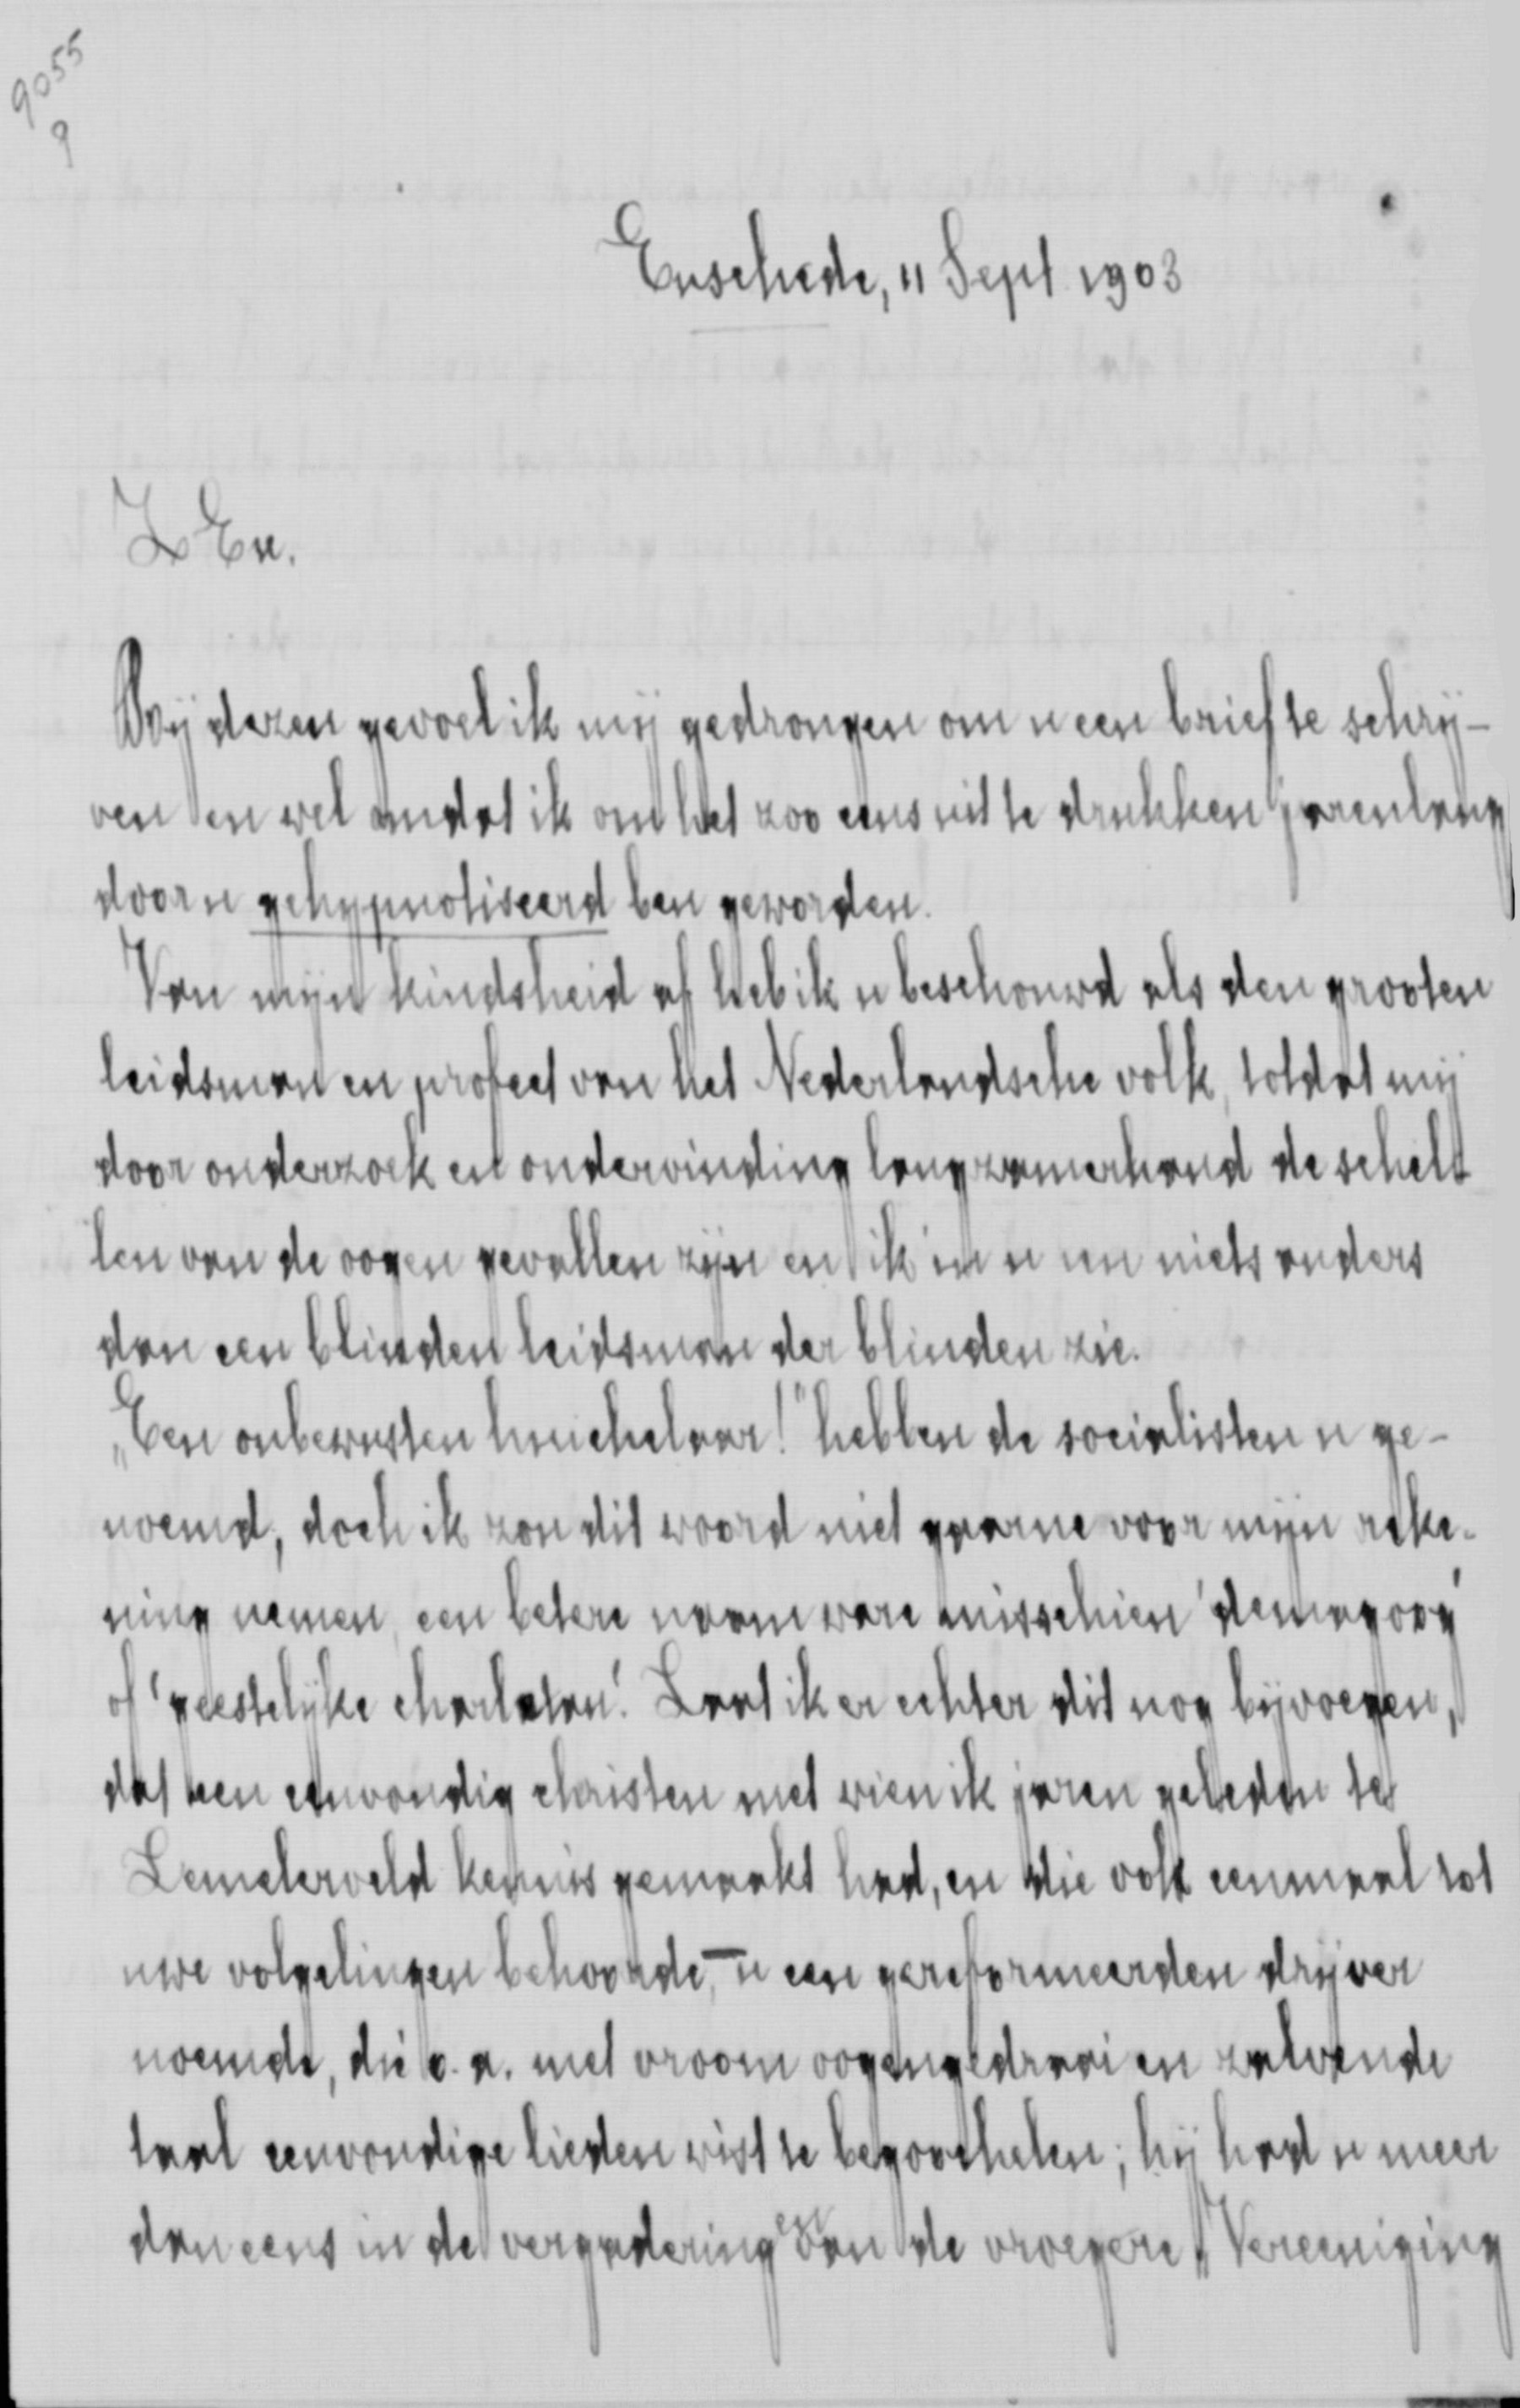 9055
9
Enschede, 11 Sept 1903
Z Ex.
Bij dezen gevoel ik mij gedrongen om u een brief te schrij-
ven en wel omdat ik om het zoo eens uit te drukken jarenlang
door u gehypnotiseerd ben geworden.
Van mijn kindsheid af heb ik u beschouwd als den grooten
leidsman en profeet van het Nederlandsche volk, totdat mij
door onderzoek en ondervinding langzamerhand de schel
len van de oogen gevallen zijn en ik in u nu niets anders
dan een blinden leidsman der blinden zie.
„Een onbewusten huichelaar!" hebben de socialisten u ge-
noemd, doch ik zou dit woord niet gaarne voor mijn reke-
ning nemen, een betere naam ware misschien 'demagoog'
of 'geestelijke charlatan'. Laat ik er echter dit nog bijvoegen,
dat een eenvoudig christen met wien ik jaren geleden te
Lemelerveld kennis gemaakt had, en die ook eenmaal tot
uwe volgelingen behoorde, – u een gereformeerden drijver
noemde, die o.a. met vroom oogengedraai en zalvende
taal eenvoudige lieden wist te begoochelen; hij had u meer
dan eens in de vergaderingen van de vroegere „Vereeniging